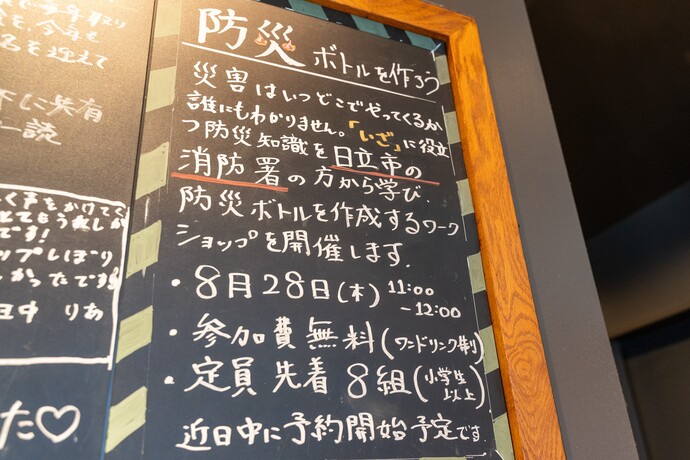 防災ボトルを作ろう
災害はいつどこでやってくるか
誰にもわかりません。「いざ」に役立
つ防災知識を日立市の
消防署の方から学び、
防災ボトルを作成するワーク
ショップを開催します。
・8月28日(木) 11:00
-12:00
・参加費無料(ワンドリンク制)
・定員先着8組(小学生
以上)
近日中に予約開始予定です
を迎えて
に共有
読
く声をかけてく
とてもうれしか
です!
ップしぼり
しかったです
日中 りあ
た♡